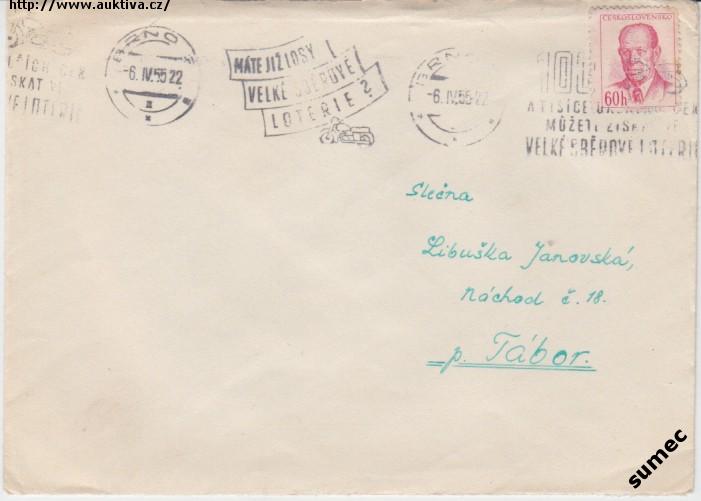 http://www.auktiva.cz/
BRNO 2
-6.IV.55-22
SKAT V
VE LOTERIE
MÁTE JIŽ LOSY
VELKÉ SBĚROVÉ
LOTERIE ?
BRNO
-6.IV.55-22
ČESKOSLOVENSKO
60h
100
A TISÍCE
MŮŽETE ZÍSKAT VE
VELKÉ SBĚROVÉ LOTERII
Slečna
Libuška Janovská,
Náchod č. 18.
p. Tábor.
sumec